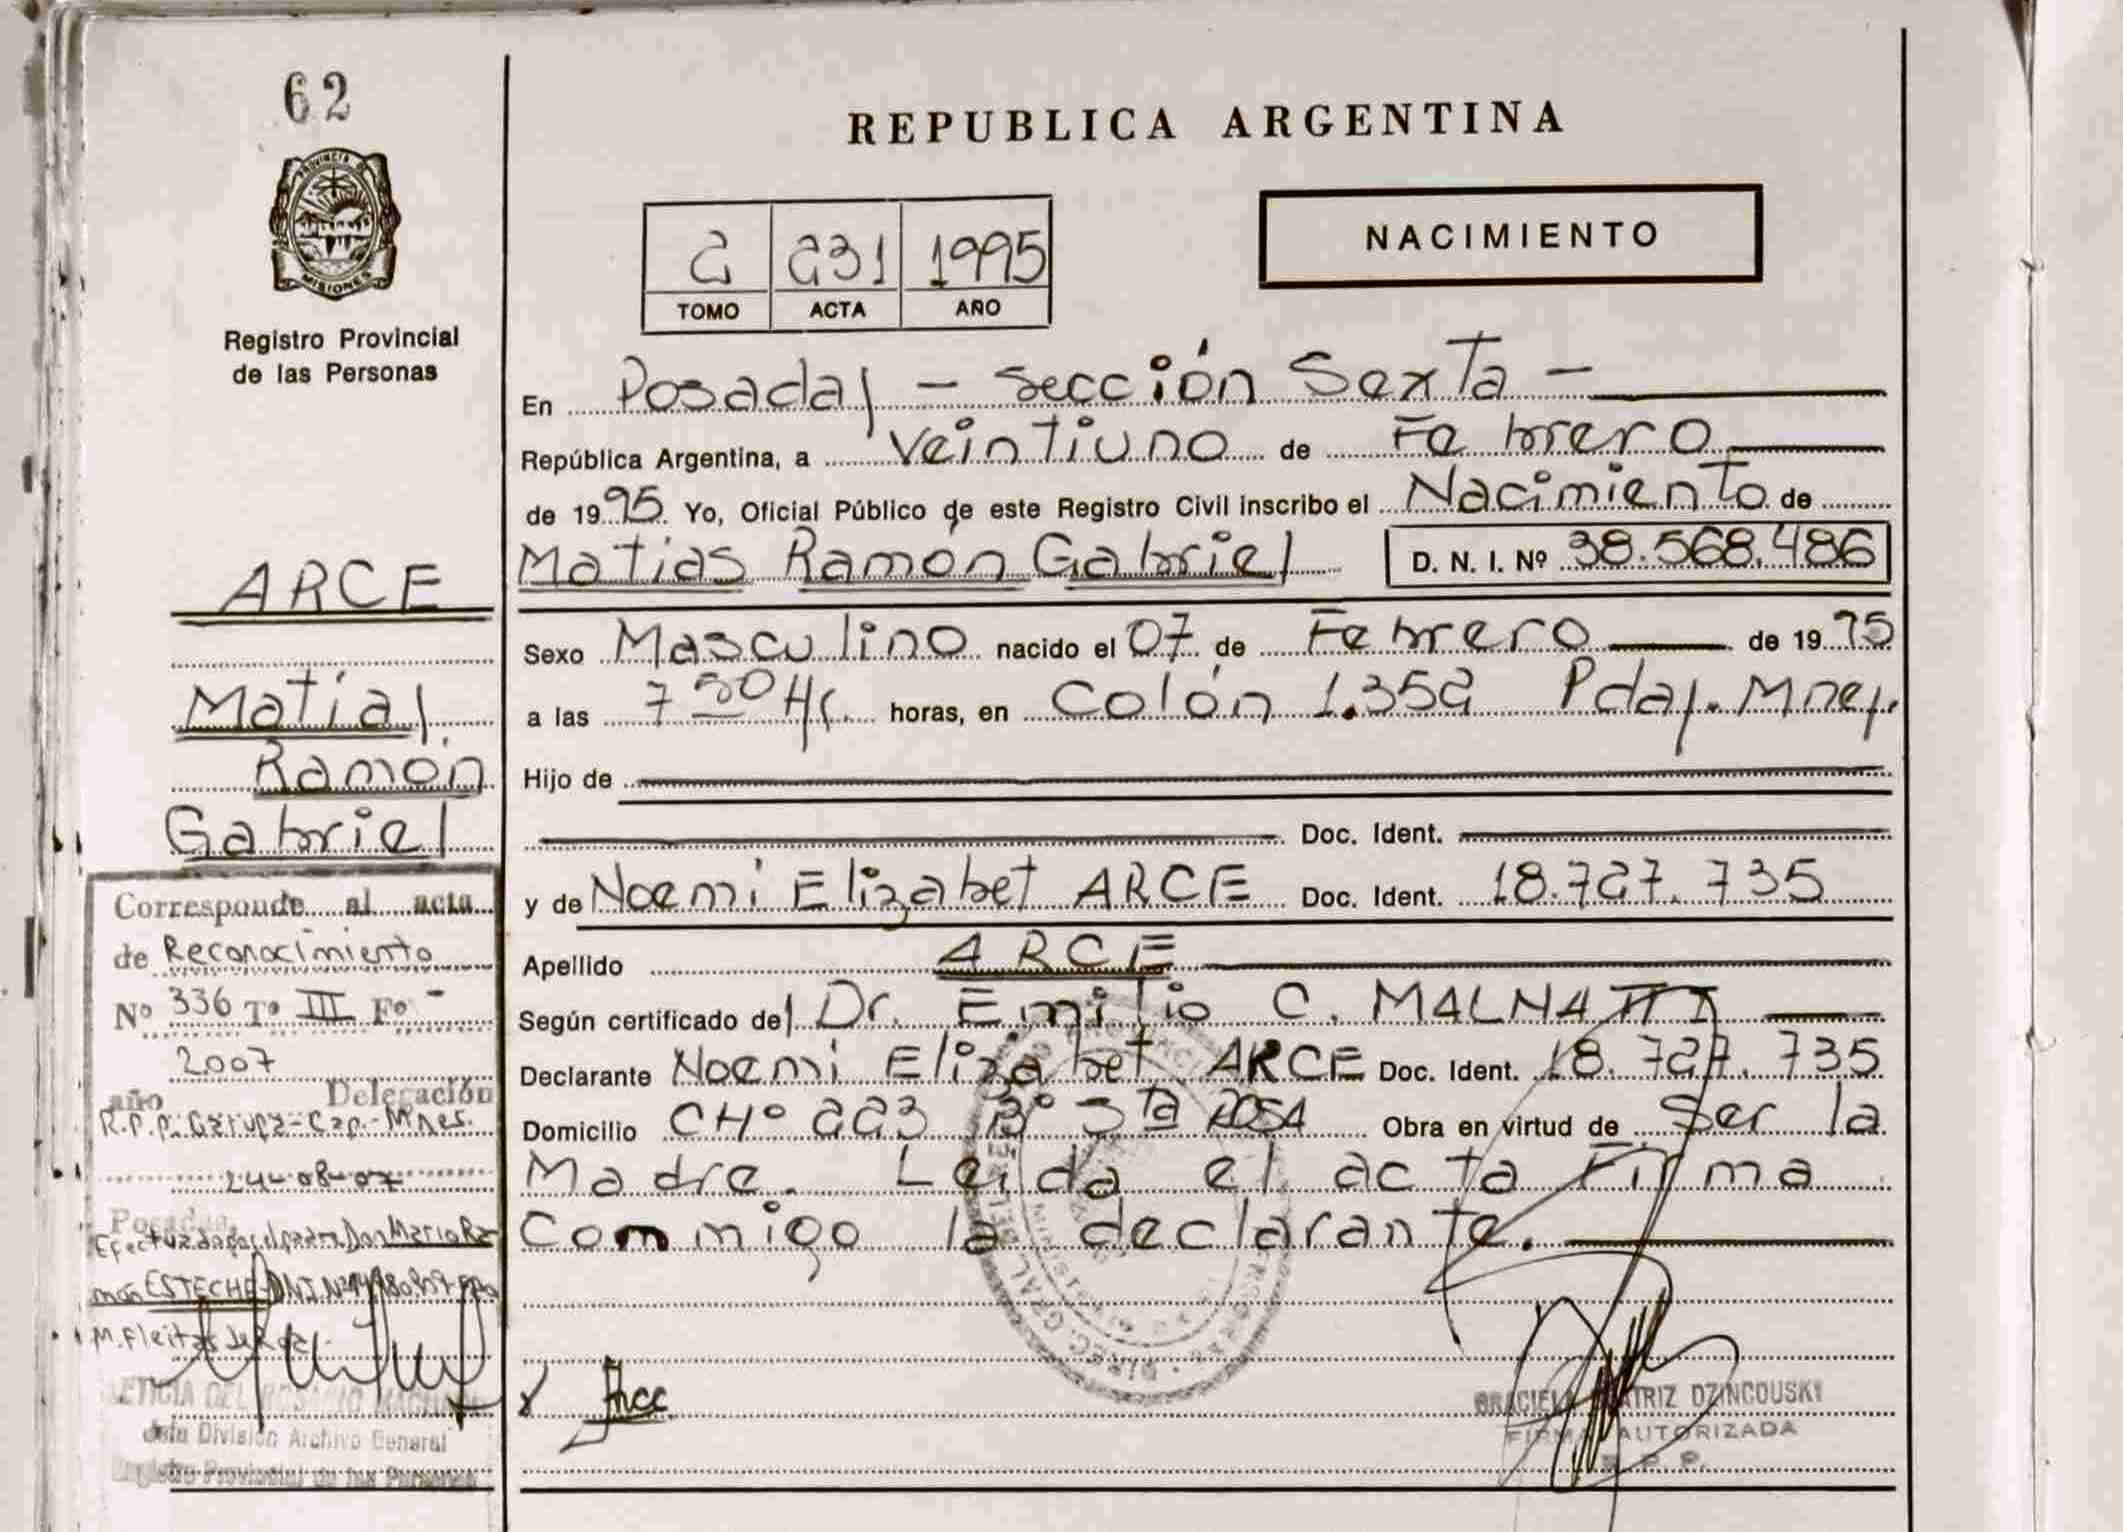 62
PROVINCIA DE
MISIONES
Registro Provincial
de las Personas
REPUBLICA ARGENTINA
2 231 1995
TOMO ACTA AÑO
NACIMIENTO
En Posadas - Sección Sexta -
República Argentina, a Veintiuno de Febrero
de 1995. Yo, Oficial Público de este Registro Civil inscribo el Nacimiento de
Matias Ramón Gabriel D. N. I. Nº 38.568.486
Sexo Masculino nacido el 07 de Febrero de 1995
a las 7 30 Hs. horas, en Colón 1.352 Pdas. Mnes.
Hijo de
Doc. Ident.
y de Noemi Elizabet ARCE Doc. Ident. 18.727.735
Apellido ARCE
Según certificado del Dr. Emilio C. MALNATTI
Declarante Noemi Elizabet ARCE Doc. Ident. 18.727.735
Domicilio CHº 223 Bº 3ta Obra en virtud de Ser la
Madre. Leida el acta Firma
Conmigo la declarante.
ARCE
Matias
Ramón
Gabriel
Corresponde al acta
de Reconocimiento
Nº 336 Tº III Fº -
2007
año Delegación
R.P.P. Garupa-Cap.-Mnes.
24-08-07
Posadas,
Efectuada por el padre Don Mario Ra
mon ESTECHE DNI Nº
M. Fleitas
LETICIA DEL ROSARIO
Jefa División Archivo General
Registro Provincial de las Personas
Arce
GRACIELA BEATRIZ DZINCOUSKI
FIRMA AUTORIZADA
R. P. P.
DIREC. GRAL. DEL REGISTRO PROVINCIAL